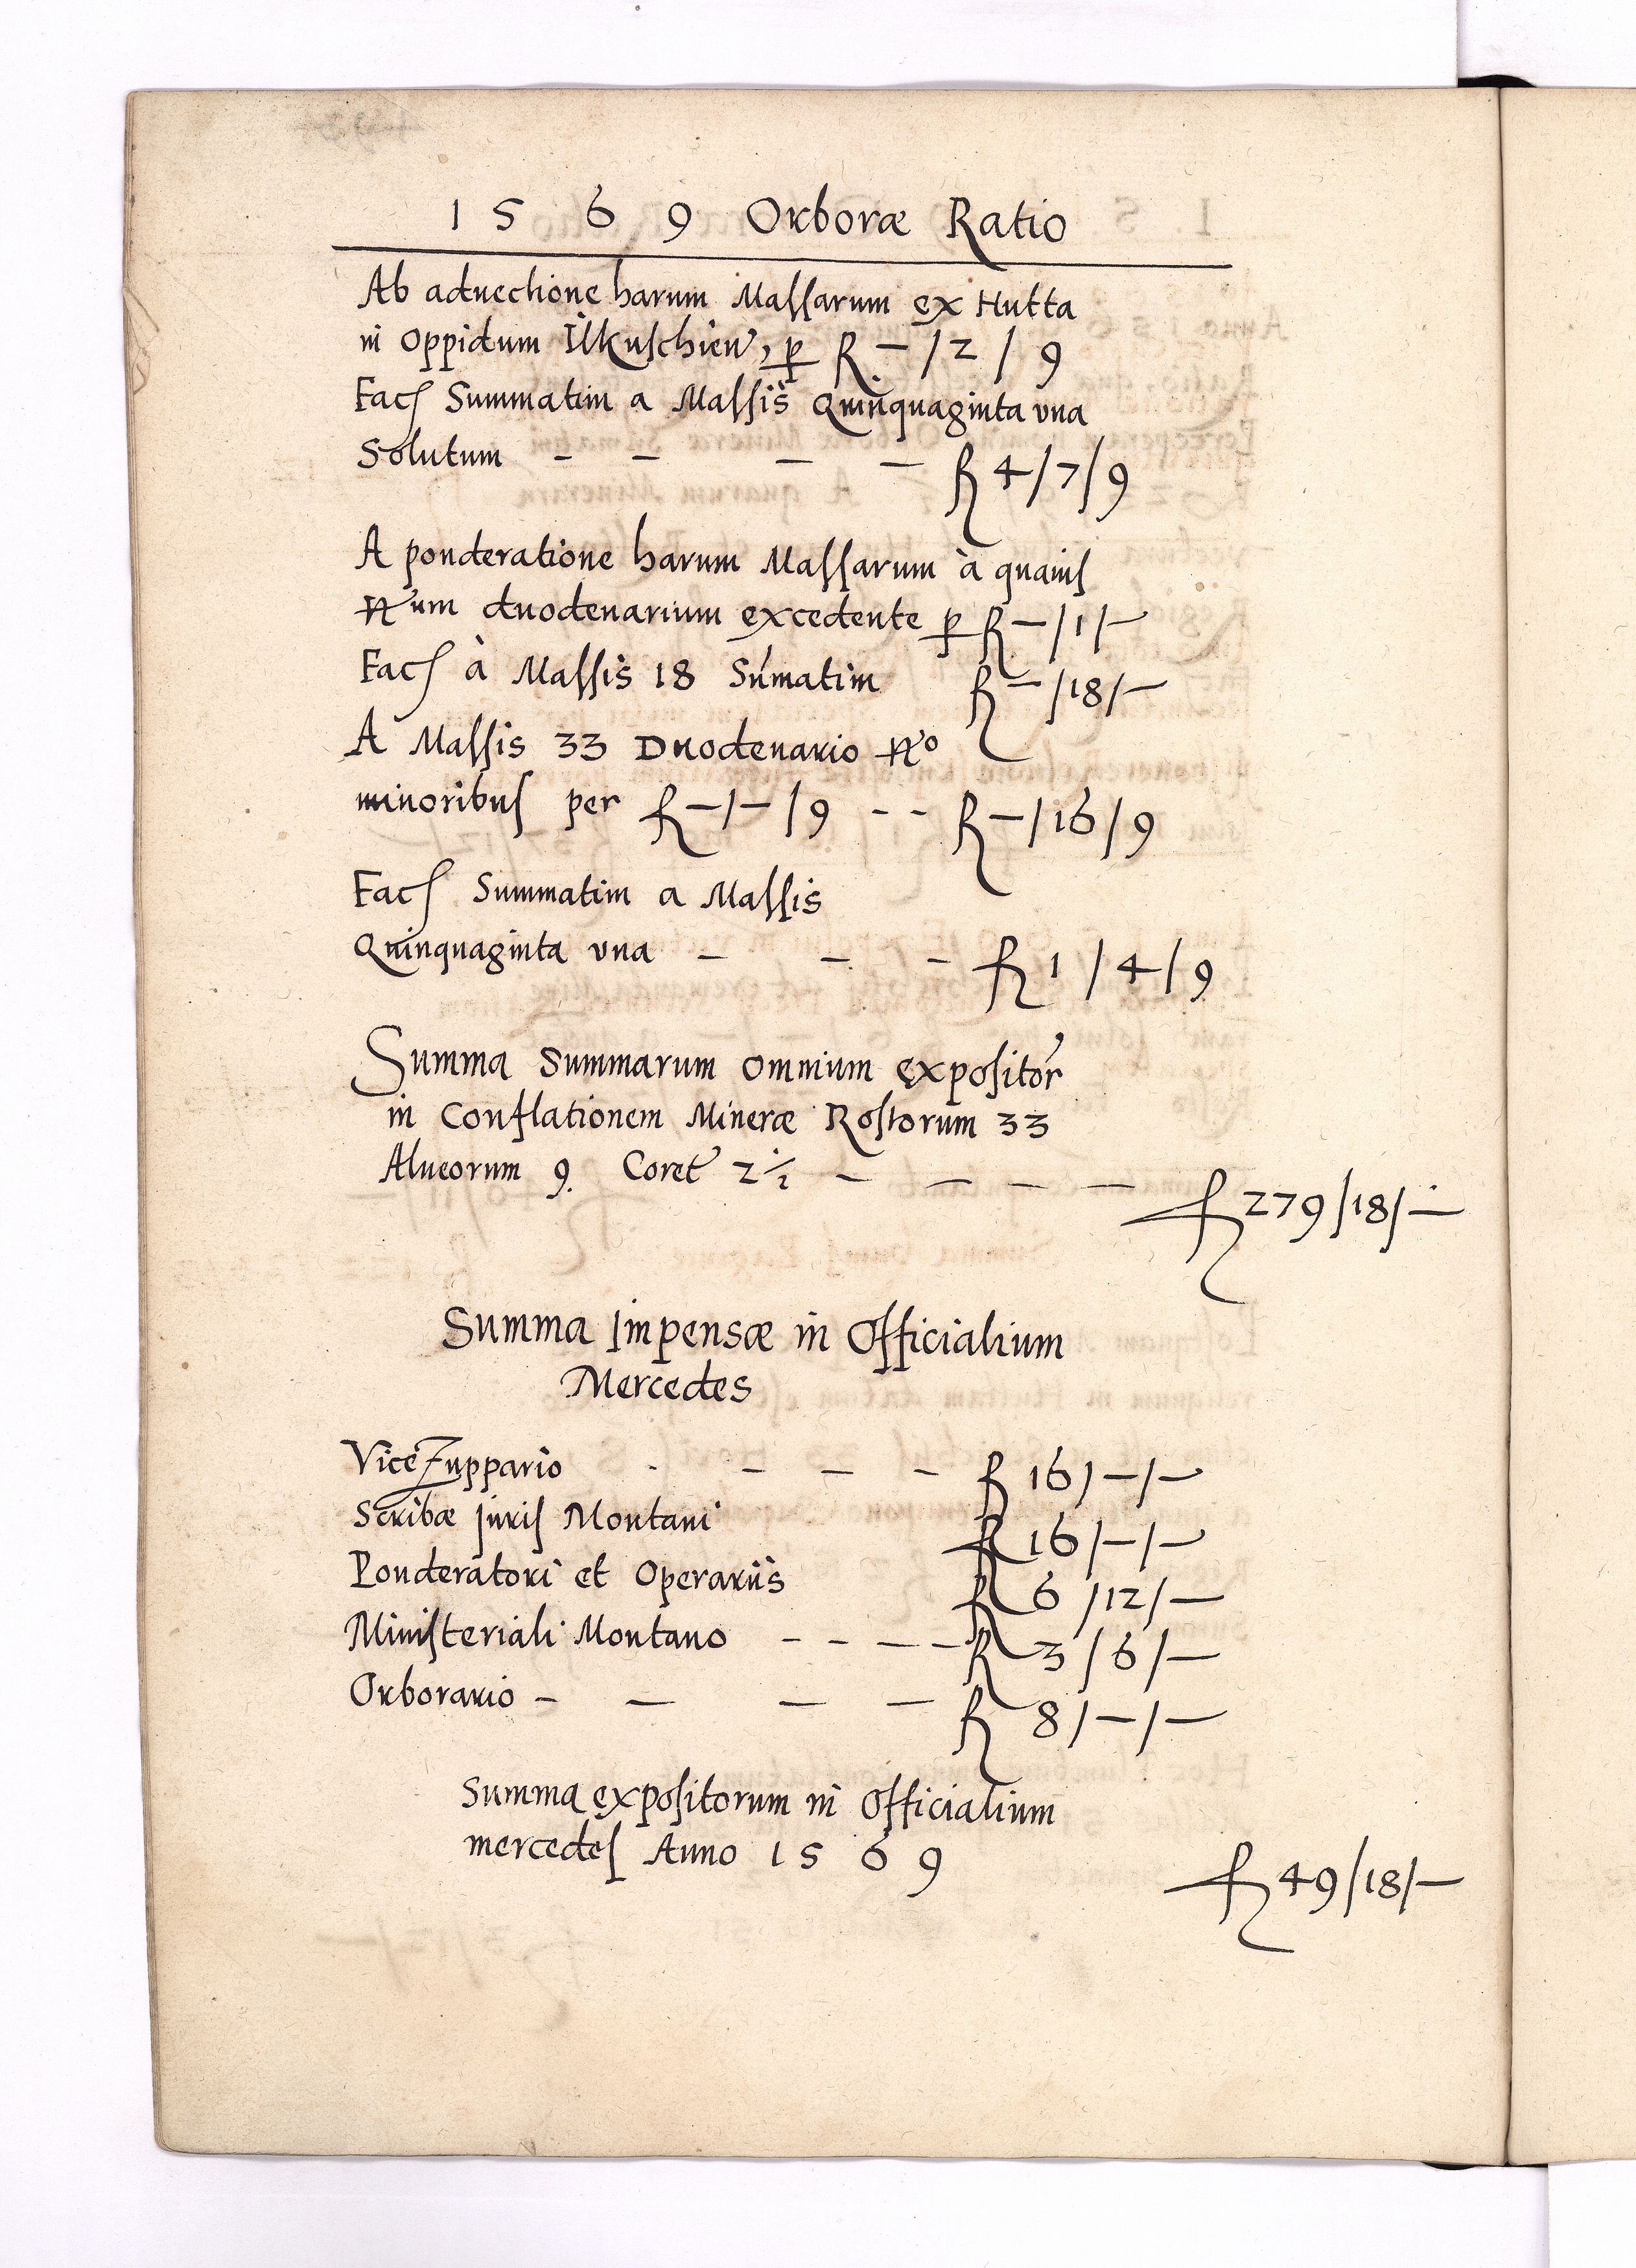 1569 Orboræ Ratio
Ab aduectione harum Massarum ex Hutta
in Oppidum Ilkuschien, p R — / 2 / 9
Facs Summatim a Massis Quinquaginta vna
Solutum — — — — R 4 / 7 / 9
A ponderatione harum Massarum à quauis
Nrum duodenarium excedente p R — / 1 / —
Facs à Massis 18 Sumatim R — / 18 / —
A Massis 33 Duodenario Nro
minoribus per R — / — / 9 - - R — / 16 / 9
Facs Summatim a Massis
Quinquaginta vna — — — R 1 / 4 / 9
Summa Summarum omnium expositor
in Conflationem Mineræ Rostorum 33
Alueorum 9. Coret 2 1/2 — — — — R 279 / 18 / —
Summa Impensæ in Officialium
Mercedes
ViceZuppario - — — — R 16 / — / —
Scribæ Juris Montani R 16 / — / —
Ponderatori et Operariis R 6 / 12 / —
Ministeriali Montano - - — — R 3 / 6 / —
Orborario — — — — R 8 / — / —
Summa expositorum in Officialium
mercedes Anno 1569 R 49 / 18 / —